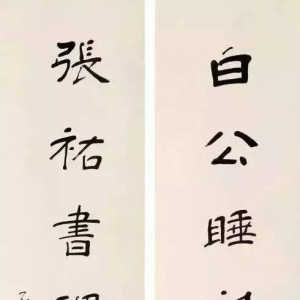 白公睡
張祐書